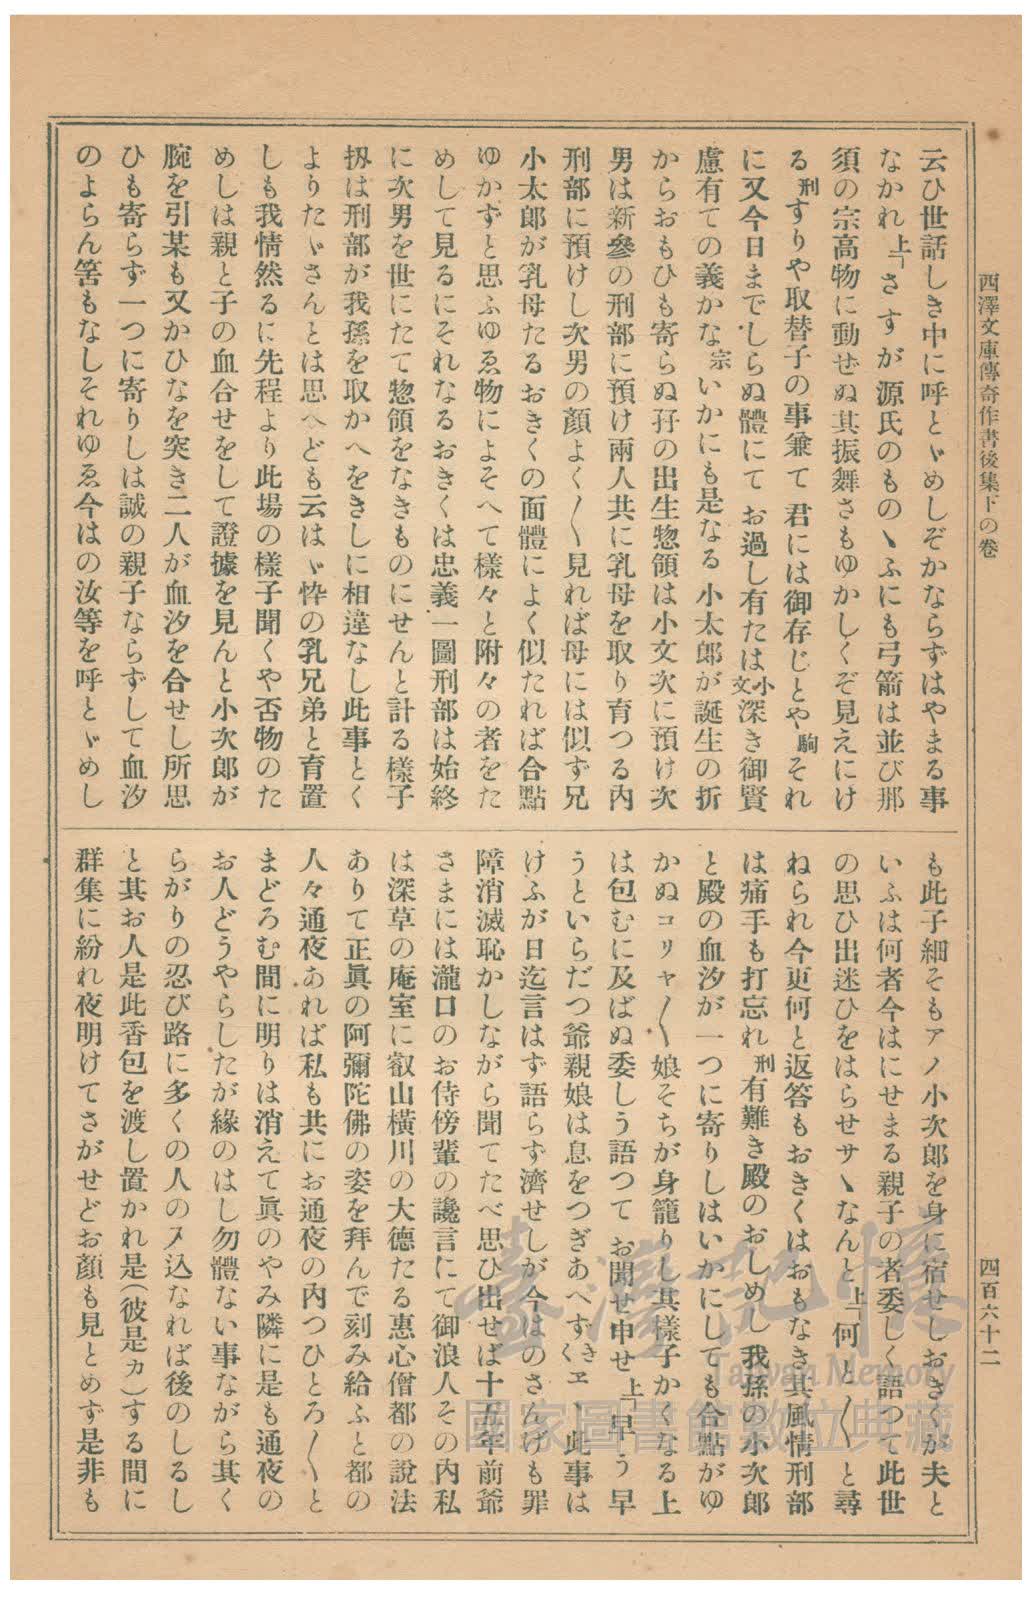 西澤文庫傳奇作書後集下の卷
四百六十二
云ひ世話しき中に呼とゞめしぞかならずはやまる事
なかれ上「さすが源氏のものゝふにも弓箭は並び那
須の宗高物に動ぜぬ其振舞さもゆかしくぞ見えにけ
る刑すりや取替子の事兼て君には御存じとや駒それ
に又今日までしらぬ體にてお過し有たは小文深き御賢
慮有ての義かな宗いかにも是なる小太郎が誕生の折
からおもひも寄らぬ孖の出生惣領は小文次に預け次
男は新參の刑部に預け兩人共に乳母を取り育つる内
刑部に預けし次男の顏よく〳〵見れば母には似ず兄
小太郎が乳母たるおきくの面體によく似たれば合點
ゆかずと思ふゆゑ物によそへて樣々と附々の者をた
めして見るにそれなるおきくは忠義一圖刑部は始終
に次男を世にたて惣領をなきものにせんと計る樣子
扨は刑部が我孫を取かへをきしに相違なし此事とく
よりたゞさんとは思へども云はゞ忰の乳兄弟と育置
しも我情然るに先程より此場の樣子聞くや否物のた
めしは親と子の血合せをして證據を見んと小次郎が
腕を引某も又かひなを突き二人が血汐を合せし所思
ひも寄らず一つに寄りしは誠の親子ならずして血汐
のよらん筈もなしそれゆゑ今はの汝等を呼とゞめし
も此子細そもアノ小次郎を身に宿せしおきくが夫と
いふは何者今はにせまる親子の者委しく語つて此世
の思ひ出迷ひをはらせサヽなんと上「何と〳〵と尋
ねられ今更何と返答もおきくはおもなき其風情刑部
は痛手も打忘れ刑有難き殿のおしめし我孫の小次郎
と殿の血汐が一つに寄りしはいかにしても合點がゆ
かぬコリヤ〳〵娘そちが身籠りし其樣子かくなる上
は包むに及ばぬ委しう語つてお聞せ申せ上「早う早
うといらだつ爺親娘は息をつぎあへずきくエヽ此事は
けふが日迄言はず語らず濟せしが今はのさんげも罪
障消滅恥かしながら聞てたべ思ひ出せば十五年前爺
さまには瀧口のお侍傍輩の讒言にて御浪人その内私
は深草の庵室に叡山橫川の大德たる惠心僧都の說法
ありて正眞の阿彌陀佛の姿を拜んで刻み給ふと都の
人々通夜あれば私も共にお通夜の内つひとろ〳〵と
まどろむ間に明りは消えて眞のやみ隣に是も通夜の
お人どうやらしたが緣のはし勿體ない事ながら其く
らがりの忍び路に多くの人のヌ込なれば後のしるし
と其お人是此香包を渡し置かれ是(彼是カ)する間に
群集に紛れ夜明けてさがせどお顏も見とめず是非も